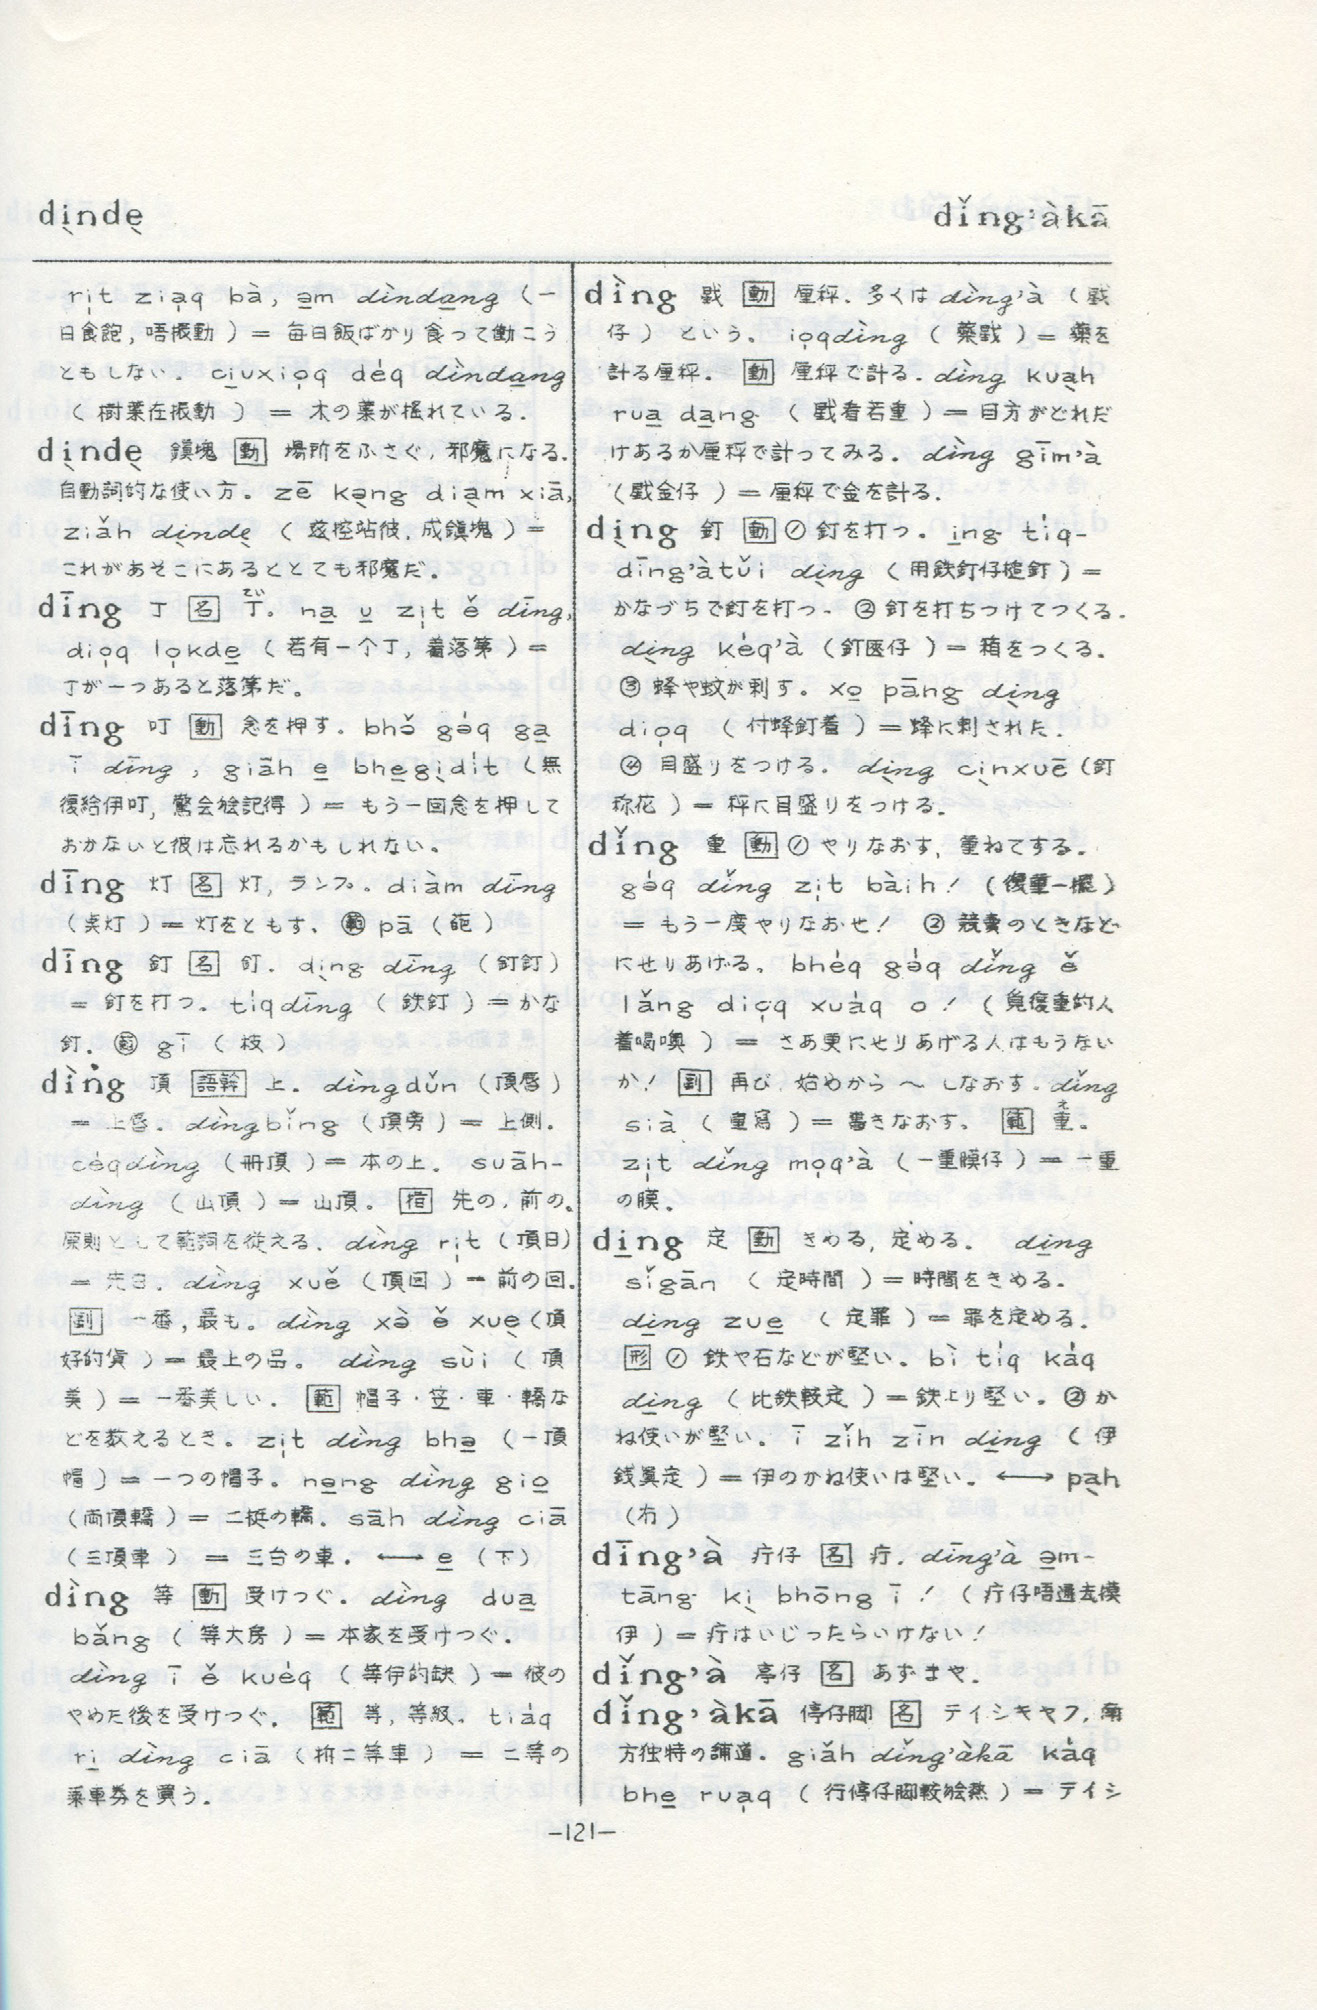 dịndẹ
dǐng'àkā
rịt ziạq bà, a̱m dìnda̱ng (一
日食飽, 唔振動) = 毎日飯ばかり食って働こう
ともしない。 ciụxiọq déq dìnda̱ng
(樹葉在振動) = 木の葉が揺れている.
dịndẹ 鎮塊 動 場所をふさぐ, 邪魔になる.
自動詞的な使い方。 zē kạng diạm xiā,
ziǎh dịndẹ (玆控站彼, 成鎮塊) =
これがあそこにあるととても邪魔だ。
dīng 丁 名 丁. na̱ u̱ zịt ě dīng,
diọq lọkde̱ (若有一个丁, 着落第) =
丁が一つあると落第だ。
dīng 叮 動 念を押す. bhə̌ gə́q ga̱
ī dīng, giāh e̱ bhe̱gịdit (無
復給伊叮, 驚会𣍐記得) = もう一回念を押して
おかないと彼は忘れるかもしれない。
dīng 灯 名 灯, ランプ。 diàm dīng
(点灯) = 灯をともす. 範 pā (葩)
dīng 釘 名 釘. dịng dīng (釘釘)
= 釘を打つ. tíqdīng (鉄釘) = かな
釘. 範 gī (枝)
dìng 頂 語幹 上. dìngdǔn (頂唇)
= 上唇. dìngbǐng (頂旁) = 上側.
céqdìng (冊頂) = 本の上. suāh-
dìng (山頂) = 山頂。 指 先の, 前の。
原則として範詞を従える. dìng rịt (頂日)
= 先日. dìng xuě (頂回) = 前の回.
副 一番, 最も。 dìng xə̀ ě xuẹ (頂
好的貨) = 最上の品. dìng sùi (頂
美) = 一番美しい. 範 帽子・笠・車・轎な
どを数えるとき。 zịt dìng bhə̱ (一頂
帽) = 一つの帽子. nə̱ng dìng gio̱
(両頂轎) = 二挺の轎. sāh dìng ciā
(三頂車) = 三台の車. ←→ e̱ (下)
dìng 等 動 受けつぐ. dìng dua̱
bǎng (等大房) = 本家を受けつぐ.
dìng ī ě kuéq (等伊的缺) = 彼の
やめた後を受けつぐ. 範 等, 等級. tiáq
ri̱ dìng ciā (拆二等車) = 二等の
乗車券を買う.
dìng 戥 動 厘秤. 多くは dìng'à (戥
仔) という. iọqdìng (薬戥) = 薬を
計る厘秤. 動 厘秤で計る. dìng kuạh
rua̱ da̱ng (戥看若重) = 目方がどれだ
けあるか厘秤で計ってみる. dìng gīm'à
(戥金仔) = 厘秤で金を計る.
dịng 釘 動 ① 釘を打つ. i̱ng tíq-
dīng'àtǔi dịng (用鉄釘仔槌釘) =
かなづちで釘を打つ. ② 釘を打ちつけてつくる.
dịng kéq'à (釘匧仔) = 箱をつくる.
③ 蜂や蚊が刺す. xo̱ pāng dịng
diọq (付蜂釘着) = 蜂に刺された.
④ 目盛りをつける. dịng cịnxuē (釘
称花) = 秤に目盛りをつける.
dǐng 重 動 ① やりなおす, 重ねてする.
gə́q dǐng zịt bàih! (復重一擺)
= もう一度やりなおせ! ② 競売のときなど
にせりあげる. bhéq gə́q dǐng ě
lǎng diọq xuáq o! (覓復重的人
着喝噢) = さあ更にせりあげる人はもうない
か! 副 再び, 始めから〜しなおす. dǐng
sià (重寫) = 書きなおす. 範 重.
zịt dǐng mọq'à (一重膜仔) = 一重
の膜.
di̱ng 定 動 きめる, 定める. di̱ng
sǐgān (定時間) = 時間をきめる.
di̱ng zue̱ (定罪) = 罪を定める.
形 ① 鉄や石などが堅い. bì tíq káq
di̱ng (比鉄較定) = 鉄より堅い. ② か
ね使いが堅い. ī zǐh zīn di̱ng (伊
銭真定) = 伊のかね使いは堅い. ←→ pạh
(冇)
dīng'à 疔仔 名 疔. dīng'à əm-
tāng kị bhōng ī! (疔仔唔通去摸
伊) = 疔はいじったらいけない!
dǐng'à 亭仔 名 あずまや.
dǐng'àkā 停仔脚 名 テイシキャフ, 南
方独特の舗道. giǎh dǐng'àkā káq
bhe̱ ruạq (行停仔脚較𣍐熱) = テイシ
—121—